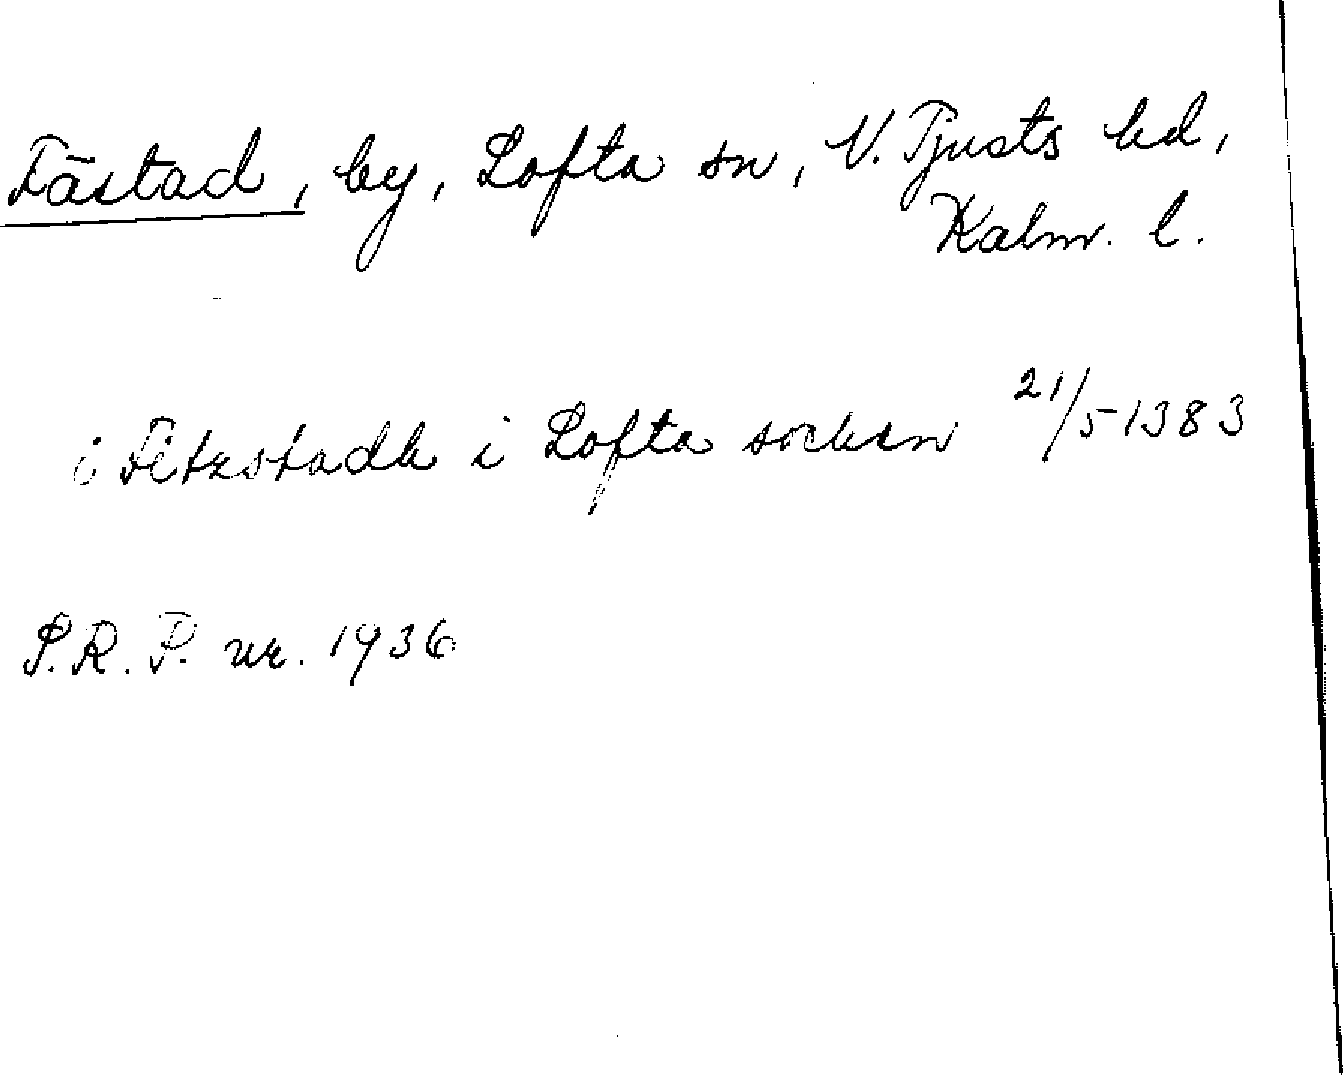 Fästad, by, Lofta sn, V. Tjusts hd,
Kalm. l.
i Fitzstadh i Lofta sochen 21/5 1383
S.R.P. nr. 1936